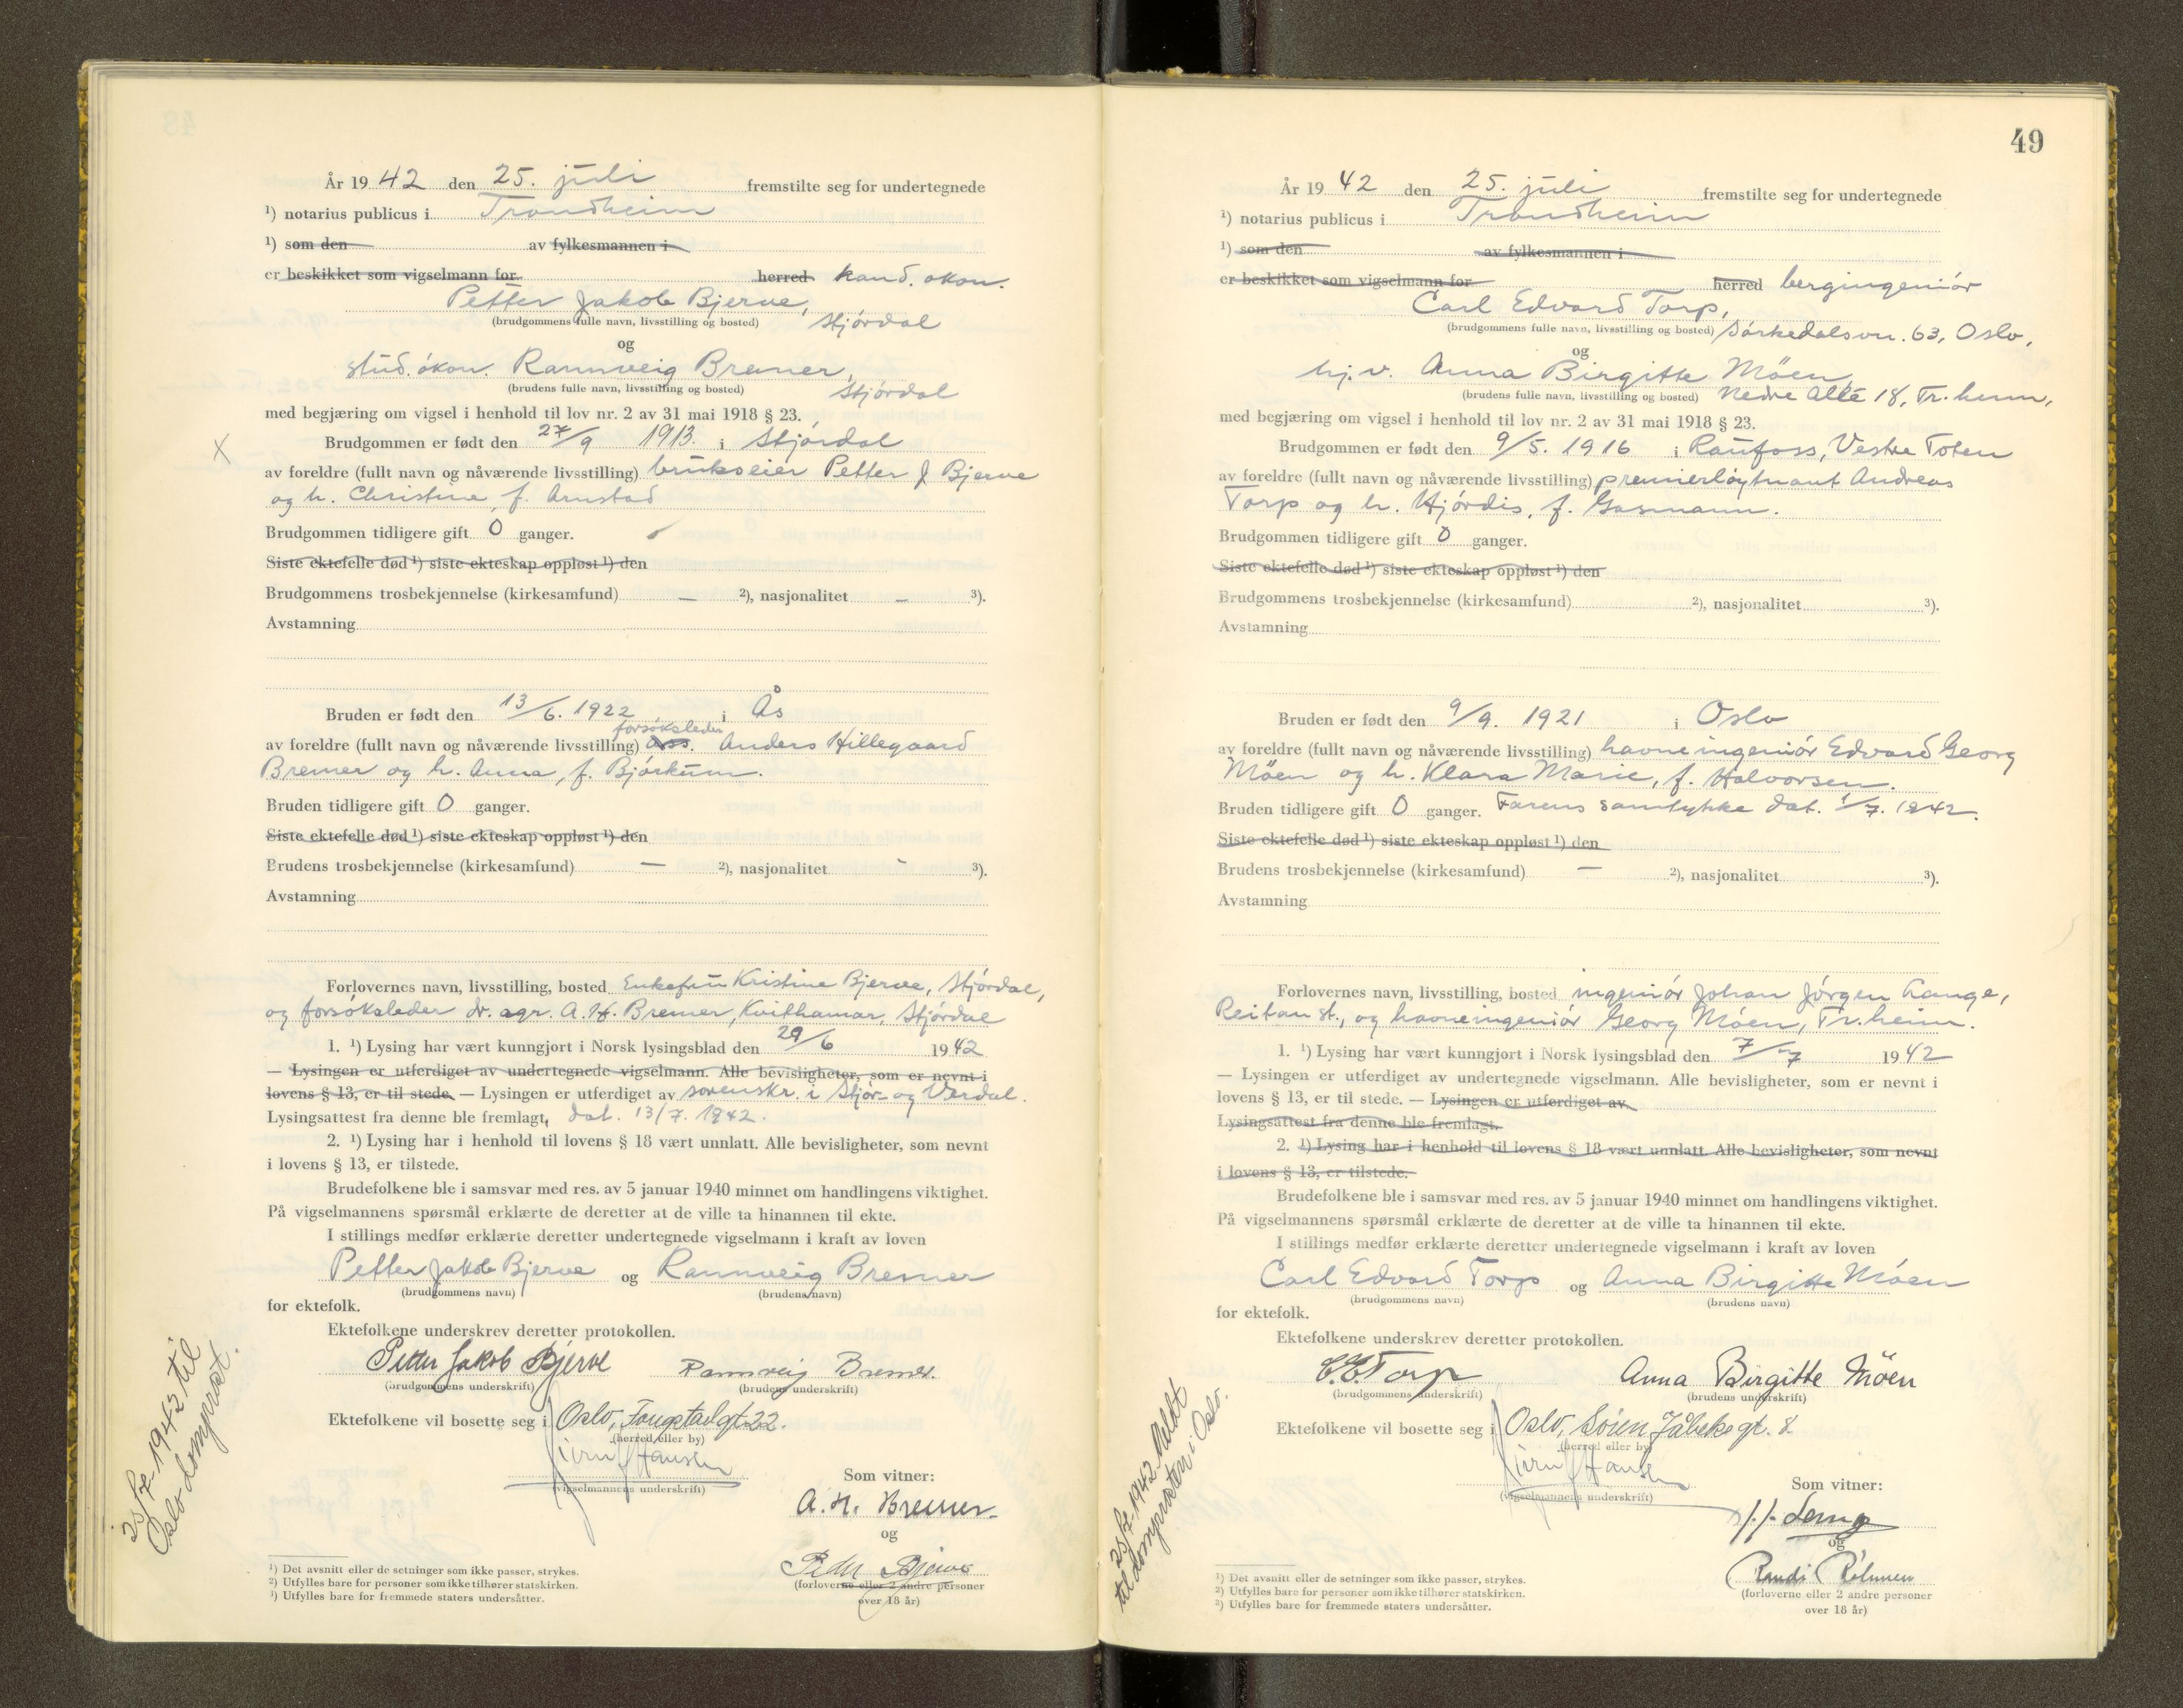 År 1942 den 25. juli fremstilte seg for undertegnede
¹) notarius publicus i Trondheim
¹) som den av fylkesmannen i
er beskikket som vigselmann for herred kand. økon.
Petter Jakob Bjerve,
(brudgommens fulle navn, livsstilling og bosted) Stjørdal
og
stud. økon. Rannveig Bremer,
(brudens fulle navn, livsstilling og bosted) Stjørdal
med begjæring om vigsel i henhold til lov nr. 2 av 31 mai 1918 § 23.
X Brudgommen er født den 27/9 1913. i Stjørdal
av foreldre (fullt navn og nåværende livsstilling) brukseier Petter J Bjerve
og h. Christine, f. Arnstad
Brudgommen tidligere gift 0 ganger.
Siste ektefelle død ¹) siste ekteskap oppløst ¹) den
Brudgommens trosbekjennelse (kirkesamfund) — ²), nasjonalitet — ³).
Avstamning
Bruden er født den 13/6. 1922 i Ås
forsøksleder
av foreldre (fullt navn og nåværende livsstilling) ass. Anders Hillegaard
Bremer og h. Anna, f. Bjørkum.
Bruden tidligere gift 0 ganger.
Siste ektefelle død ¹) siste ekteskap oppløst ¹) den
Brudens trosbekjennelse (kirkesamfund) — ²), nasjonalitet - ³).
Avstamning
Forlovernes navn, livsstilling, bosted Enkefru Kristine Bjerve, Stjørdal,
og forsøksleder dr. agr. A. H. Bremer, Kvithamar, Stjørdal
1. ¹) Lysing har vært kunngjort i Norsk lysingsblad den 29/6 1942
— Lysingen er utferdiget av undertegnede vigselmann. Alle bevisligheter, som er nevnt i
lovens § 13, er til stede. — Lysingen er utferdiget av sorenskr. i Stjør- og Verdal.
Lysingsattest fra denne ble fremlagt, dat. 13/7. 1942.
2. ¹) Lysing har i henhold til lovens § 18 vært unnlatt. Alle bevisligheter, som nevnt
i lovens § 13, er tilstede.
Brudefolkene ble i samsvar med res. av 5 januar 1940 minnet om handlingens viktighet.
På vigselmannens spørsmål erklærte de deretter at de ville ta hinannen til ekte.
I stillings medfør erklærte deretter undertegnede vigselmann i kraft av loven
Petter Jakob Bjerve og Rannveig Bremer
(brudgommens navn) (brudens navn)
for ektefolk.
Ektefolkene underskrev deretter protokollen.
Petter Jakob Bjerve Rannveig Bremer.
(brudgommens underskrift) (brudens underskrift)
Ektefolkene vil bosette seg i Oslo, Tougstadgt. 22.
(herred eller by)
Hansen
(vigselmannens underskrift)
Som vitner:
A. H. Bremer.
og
Peder Bjerve
(forloverne eller 2 andre personer
over 18 år)
25/7-1942 til
Oslo domprost.
¹) Det avsnitt eller de setninger som ikke passer, strykes.
²) Utfylles bare for personer som ikke tilhører statskirken.
³) Utfylles bare for fremmede staters undersåtter.
49
År 1942 den 25. juli fremstilte seg for undertegnede
¹) notarius publicus i Trondheim
¹) som den av fylkesmannen i
er beskikket som vigselmann for herred bergingeniør
Carl Edvard Torp,
(brudgommens fulle navn, livsstilling og bosted) Sørkedalsvn. 63, Oslo,
og
hj.v. Anna Birgitte Möen,
(brudens fulle navn, livsstilling og bosted) Nedre Allé 18, Tr.heim,
med begjæring om vigsel i henhold til lov nr. 2 av 31 mai 1918 § 23.
Brudgommen er født den 9/5. 1916 i Raufoss, Vestre Toten
av foreldre (fullt navn og nåværende livsstilling) premierløytnant Andreas
Torp og h. Hjørdis, f. Gasmann.
Brudgommen tidligere gift 0 ganger.
Siste ektefelle død ¹) siste ekteskap oppløst ¹) den
Brudgommens trosbekjennelse (kirkesamfund) ²), nasjonalitet ³).
Avstamning
Bruden er født den 9/9. 1921 i Oslo
av foreldre (fullt navn og nåværende livsstilling) havneingeniør Edvard Georg
Möen og h. Klara Marie, f. Halvorsen.
Bruden tidligere gift 0 ganger. Farens samtykke dat. 1/7. 1942.
Siste ektefelle død ¹) siste ekteskap oppløst ¹) den
Brudens trosbekjennelse (kirkesamfund) — ²), nasjonalitet ³).
Avstamning
Forlovernes navn, livsstilling, bosted ingeniør Johan Jørgen Lange,
Reitan st., og havneingeniør Georg Möen, Tr.heim.
1. ¹) Lysing har vært kunngjort i Norsk lysingsblad den 7/7 1942
— Lysingen er utferdiget av undertegnede vigselmann. Alle bevisligheter, som er nevnt i
lovens § 13, er til stede. — Lysingen er utferdiget av
Lysingsattest fra denne ble fremlagt.
2. ¹) Lysing har i henhold til lovens § 18 vært unnlatt. Alle bevisligheter, som nevnt
i lovens § 13, er tilstede.
Brudefolkene ble i samsvar med res. av 5 januar 1940 minnet om handlingens viktighet.
På vigselmannens spørsmål erklærte de deretter at de ville ta hinannen til ekte.
I stillings medfør erklærte deretter undertegnede vigselmann i kraft av loven
Carl Edvard Torp og Anna Birgitte Möen
(brudgommens navn) (brudens navn)
for ektefolk.
Ektefolkene underskrev deretter protokollen.
C. E. Torp Anna Birgitte Möen
(brudgommens underskrift) (brudens underskrift)
Ektefolkene vil bosette seg i Oslo, Søren Jåbeks gt. 8
(herred eller by)
Hansen
(vigselmannens underskrift)
Som vitner:
J. J. Lange
og
Randi
(forloverne eller 2 andre personer
over 18 år)
25/7-1942 Meldt
til domprosten i Oslo.
¹) Det avsnitt eller de setninger som ikke passer, strykes.
²) Utfylles bare for personer som ikke tilhører statskirken.
³) Utfylles bare for fremmede staters undersåtter.